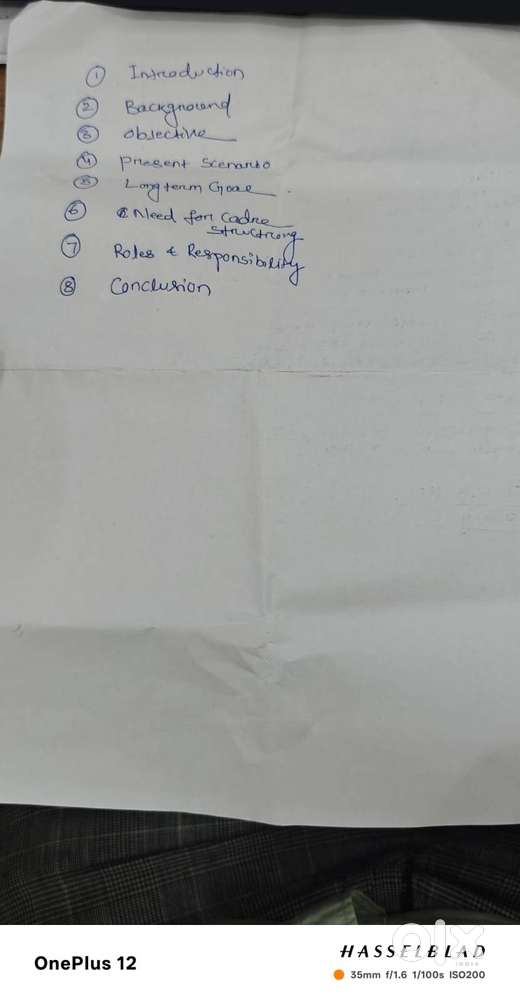 ① Introduction
② Background
③ Objective
④ Present Scenario
⑤ Longterm Goal
⑥ Need for Cadre
structrong
⑦ Roles & Responsibility
⑧ Conclusion
olx
INDIA
OnePlus 12
HASSELBLAD
35mm f/1.6 1/100s ISO200